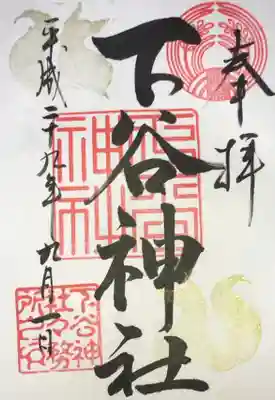 奉拝
下谷神社
平成二十九年 九月一日
下谷神社
下谷神社社務所之印